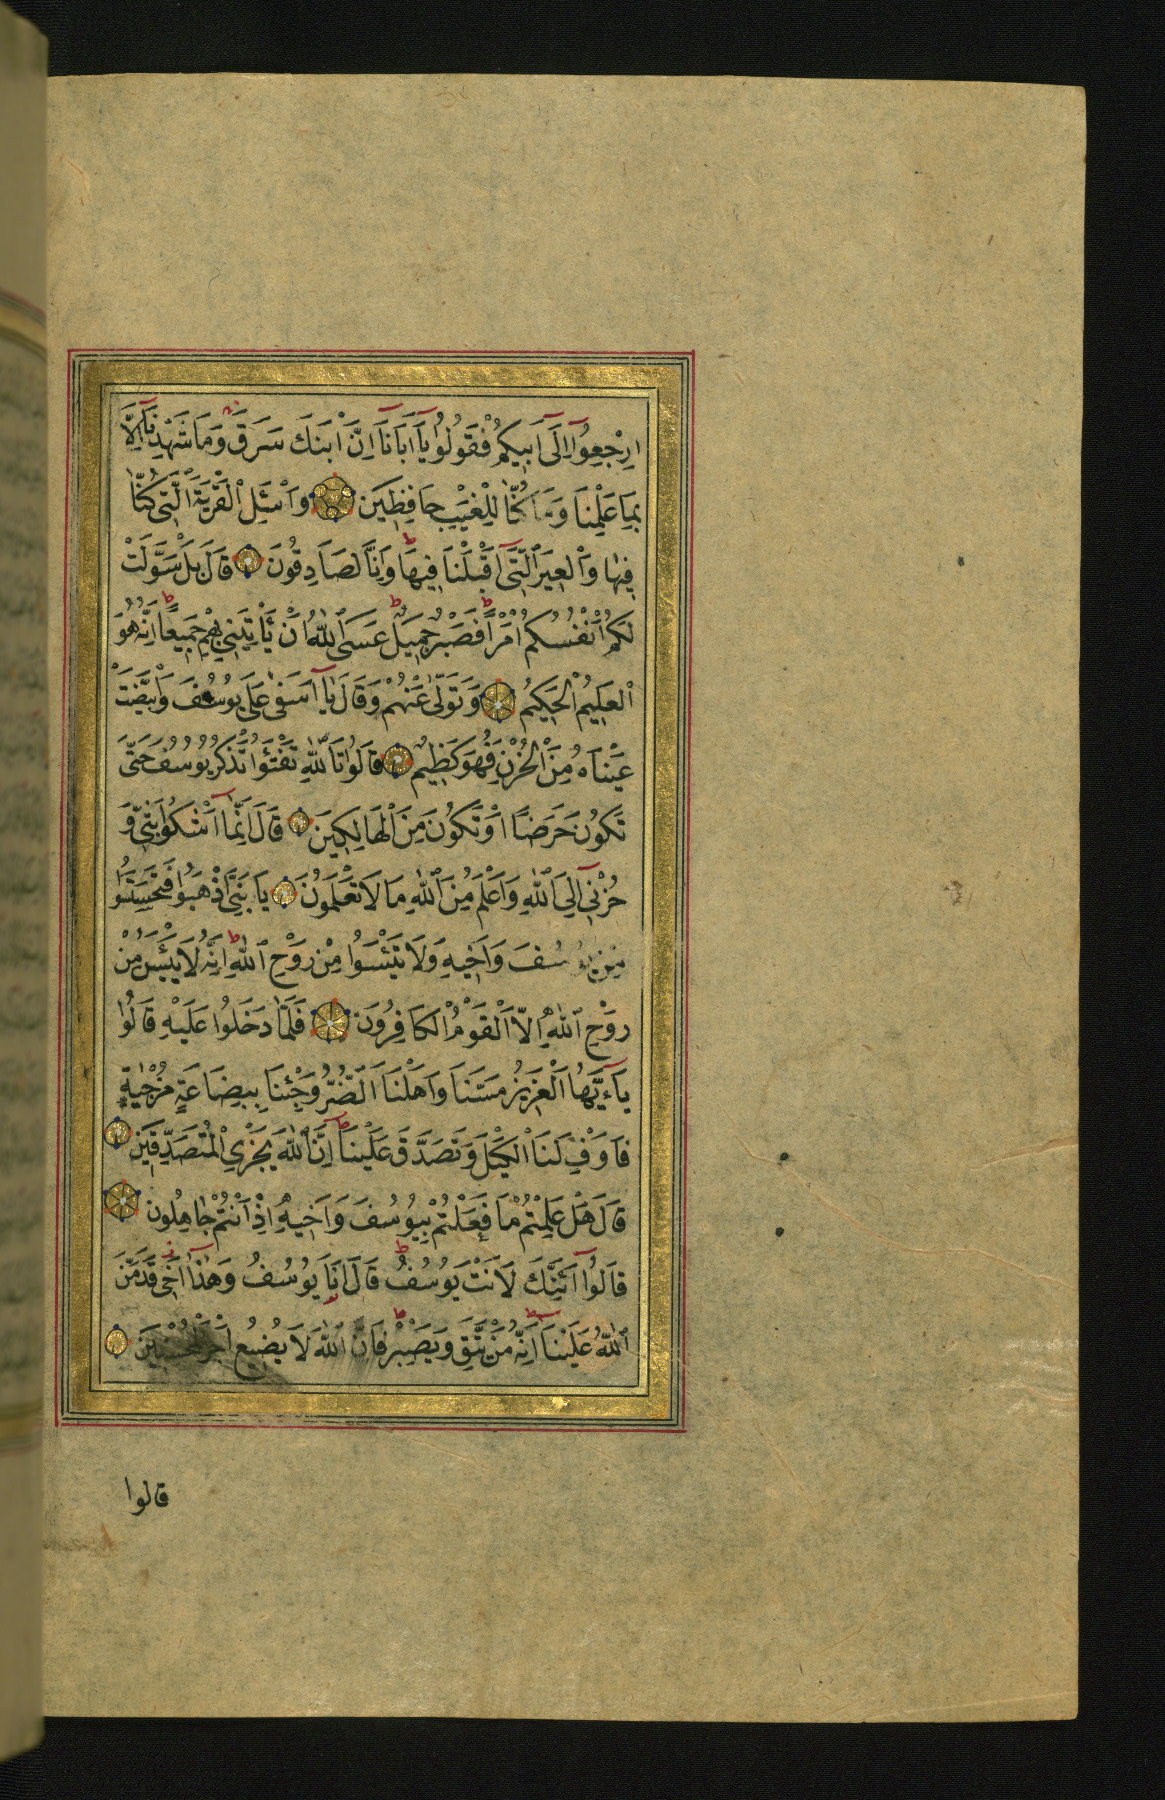 اِرْجِعُوا اِلَى اَبِيكُمْ فَقُولُوا يَا اَبَانَا اِنَّ ابْنَكَ سَرَقَ وَمَا شَهِدْنَا اِلَّا
بِمَا عَلِمْنَا وَمَا كُنَّا لِلْغَيْبِ حَافِظِينَ وَاسْئَلِ الْقَرْيَةَ الَّتِى كُنَّا
فِيهَا وَالْعِيرَ الَّتِى اَقْبَلْنَا فِيهَا وَاِنَّا لَصَادِقُونَ قَالَ بَلْ سَوَّلَتْ
لَكُمْ اَنْفُسُكُمْ اَمْرًا فَصَبْرٌ جَمِيلٌ عَسَى اللّٰهُ اَنْ يَأْتِيَنِى بِهِمْ جَمِيعًا اِنَّهُ هُوَ
الْعَلِيمُ الْحَكِيمُ وَتَوَلّٰى عَنْهُمْ وَقَالَ يَا اَسَفٰى عَلٰى يُوسُفَ وَابْيَضَّتْ
عَيْنَاهُ مِنَ الْحُزْنِ فَهُوَ كَظِيمٌ قَالُوا تَاللّٰهِ تَفْتَؤُا تَذْكُرُ يُوسُفَ حَتَّى
تَكُونَ حَرَضًا اَوْ تَكُونَ مِنَ الْهَالِكِينَ قَالَ اِنَّمَا اَشْكُوا بَثِّى وَ
حُزْنِى اِلَى اللّٰهِ وَاَعْلَمُ مِنَ اللّٰهِ مَا لَا تَعْلَمُونَ يَا بَنِىَّ اذْهَبُوا فَتَحَسَّسُوا
مِنْ يُوسُفَ وَاَخِيهِ وَلَا تَيْئَسُوا مِنْ رَوْحِ اللّٰهِ اِنَّهُ لَا يَيْئَسُ مِنْ
رَوْحِ اللّٰهِ اِلَّا الْقَوْمُ الْكَافِرُونَ فَلَمَّا دَخَلُوا عَلَيْهِ قَالُوا
يَا ءَيُّهَا الْعَزِيزُ مَسَّنَا وَاَهْلَنَا الضُّرُّ وَجِئْنَا بِبِضَاعَةٍ مُزْجٰيةٍ
فَاَوْفِ لَنَا الْكَيْلَ وَتَصَدَّقْ عَلَيْنَا اِنَّ اللّٰهَ يَجْزِى الْمُتَصَدِّقِينَ
قَالَ هَلْ عَلِمْتُمْ مَا فَعَلْتُمْ بِيُوسُفَ وَاَخِيهِ اِذْ اَنْتُمْ جَاهِلُونَ
قَالُوا اَئِنَّكَ لَاَنْتَ يُوسُفُ قَالَ اَنَا يُوسُفُ وَهٰذَا اَخِى قَدْ مَنَّ
اللّٰهُ عَلَيْنَا اِنَّهُ مَنْ يَتَّقِ وَيَصْبِرْ فَاِنَّ اللّٰهَ لَا يُضِيعُ اَجْرَ الْمُحْسِنِينَ
قالوا